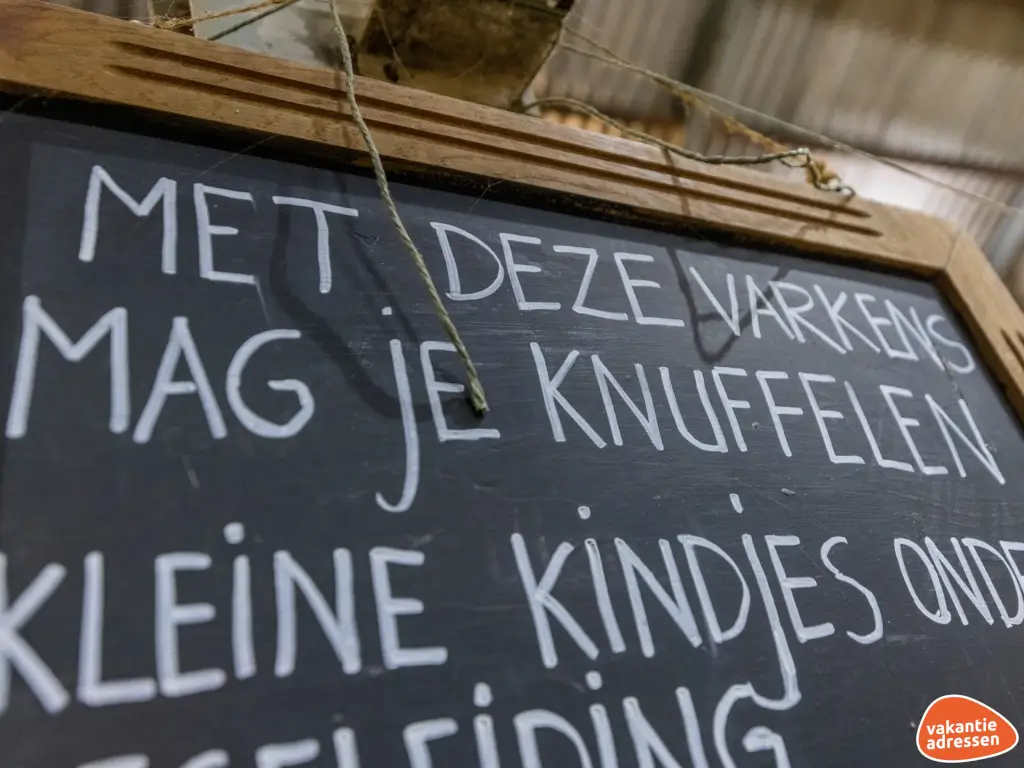 MET DEZE VARKENS
MAG jE KNUFFELEN
KLEiNE KiNDjES ONDE
EGELEiDiNG
vakantie
adressen